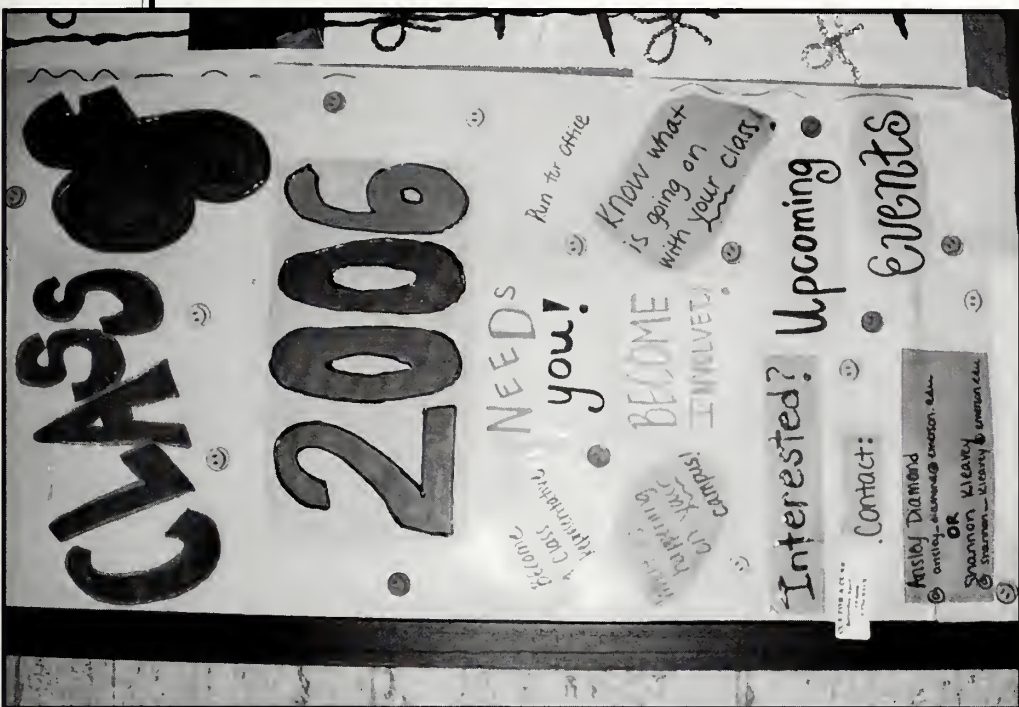 CLASS of
2006
NEEDS
you!
Run for office
Become
a Class
Representative
Know what
is going on
with your class!
BECOME
INVOLVED!
happening
on your
campus!
Interested?
Upcoming
Events
Contact:
Ansley Diamond
@ ansley_diamond@emerson.edu
OR
Shannon Kleavey
@ shannon_kleavey@emerson.edu